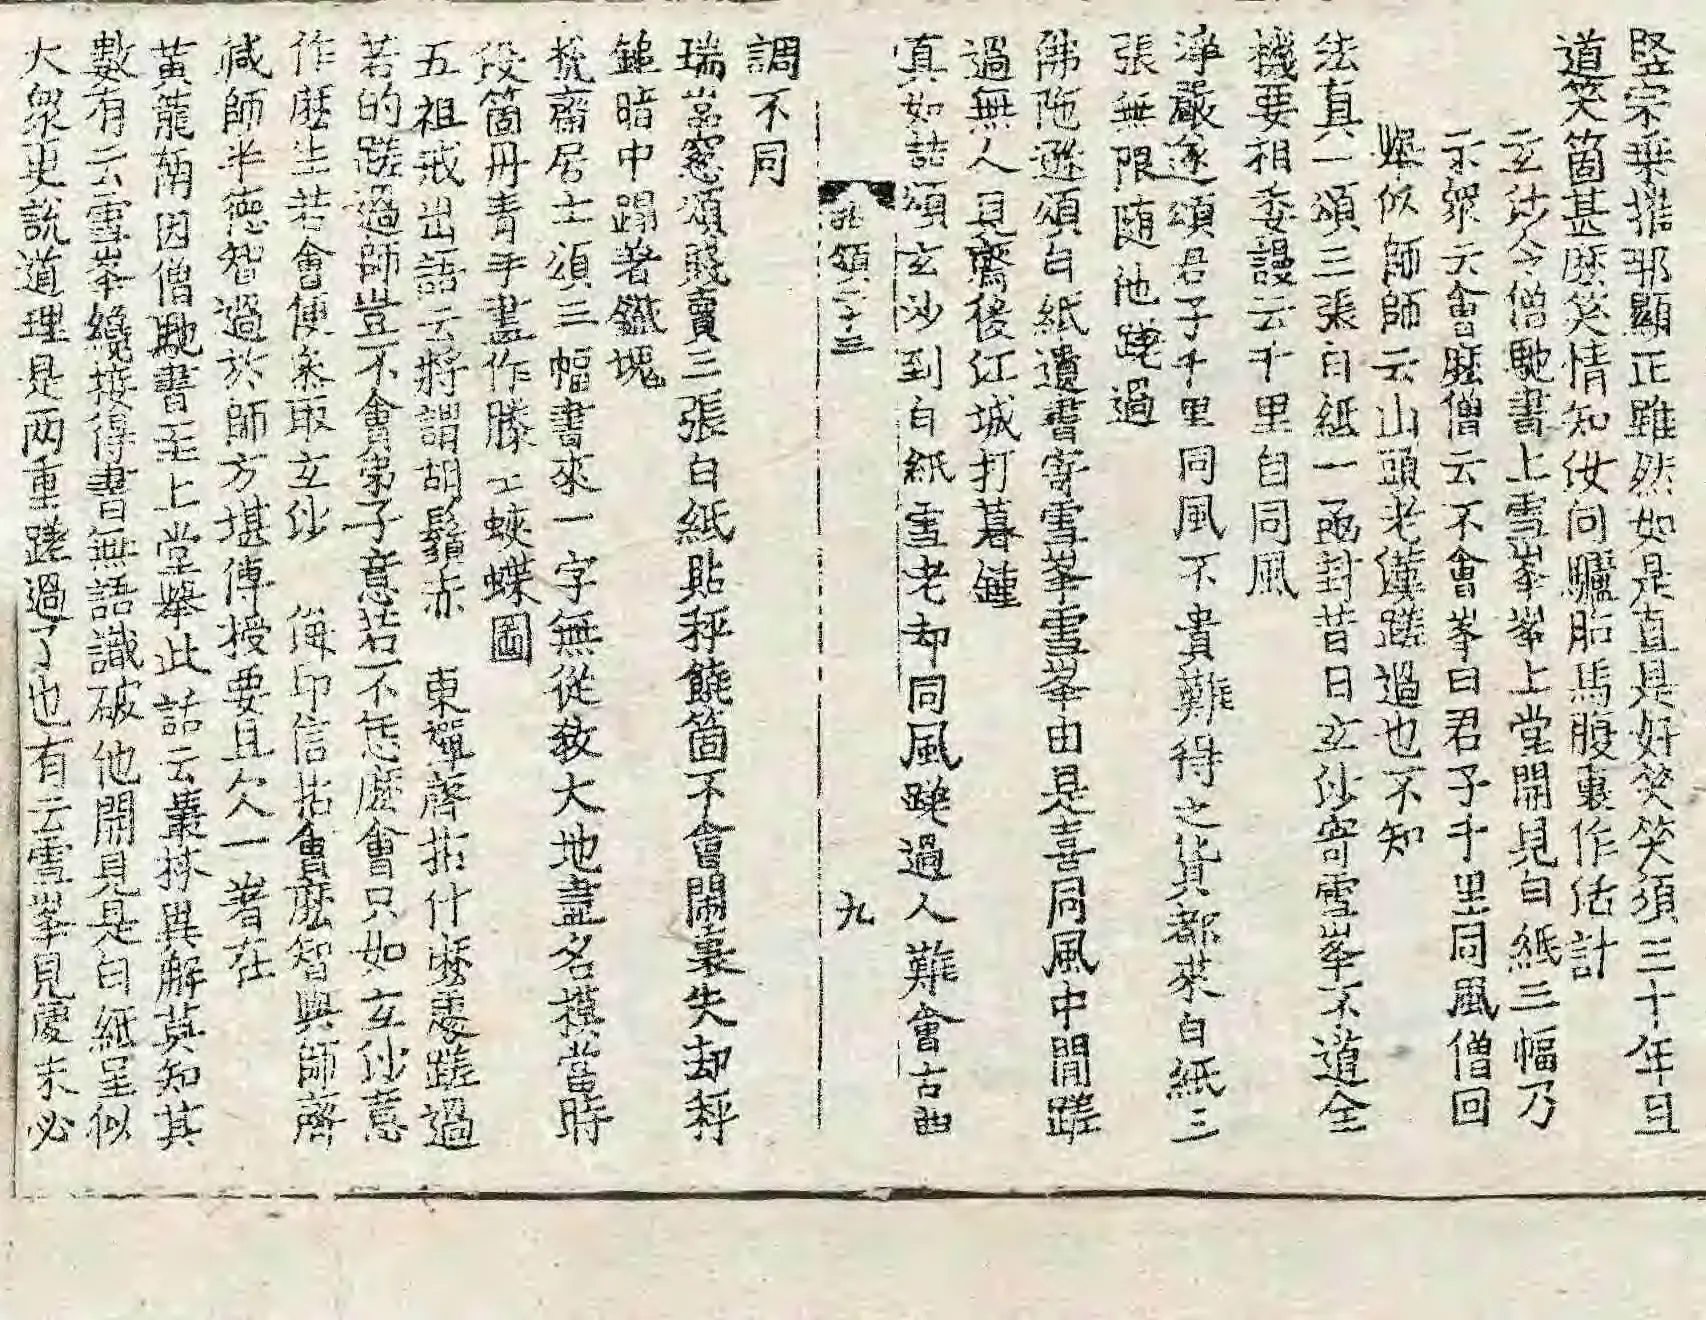 竪宗乗摧邪顯正雖然如是直是好笑笑須三十年且
道笑箇甚麽笑情知伱向驢胎馬腹裏作活計
玄沙令僧馳書上雪峯峯上堂開見白紙三幅乃
示衆云會麽僧云不會峯曰君子千里同風僧回
舉似師師云山頭老漢蹉過也不知
法真一頌三張白紙一凾封昔日玄沙寄雪峯不道全
機要祖委謾云千里自同風
淨嚴遂頌君子千里同風不貴難得之貨都來白紙三
張無限随他蹉過
佛陁遜頌白紙遺書寄雪峯雪峯由是喜同風中間蹉
過無人見齋後江城打暮鍾
真如喆頌玄沙到白紙雪老却同風蹉過人難會古曲
拈頌二十三 九
調不同
瑞嵓窓頌賤賣三張白紙貼秤饒箇不會閙裏失却秤
鎚暗中蹋著鐵塊
梳齋居士頌三幅書來一字無從敎大地盡名摸當時
段箇丹青手畫作滕王蛺蝶圖
五祖戒出語云將謂胡鬚赤 東禪齊拈什麽處蹉過
若的蹉過師豈不會弟子意若不恁麽會只如玄沙意
作麽生若會便叅取玄沙 海印信拈會麽智與師齊
减師半德智過於師方堪傳授要且欠一著在
黃龍南因僧馳書至上堂舉此話云叢林異解莫知其
數有云雪峯纔接得書無語識破他開見是白紙呈似
大衆更說道理是两重蹉過了也有云雪峯見處未必